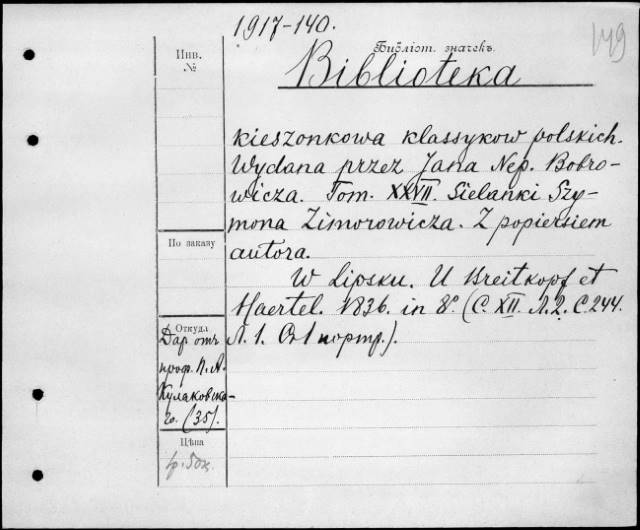 1917-140.
149
Библіот. значекъ.
Инв.
№
Biblioteka
kieszonkowa klassykow polskich.
Wydana przez Jana Nep. Bobro-
wicza. Tom. XXVII. Sielanki Szy-
mona Zimorowicza. Z popiersiem
По заказу
autora.
W Lipsku. U Breitkopf et
Haertel. 1836. in 8°. (С. XII. Л. 2. С 244.
Л. 1. Съ 1 портр.).
Откуда
Даръ отъ
проф. П. А.
Кулаковска-
го. (35).
Цѣна